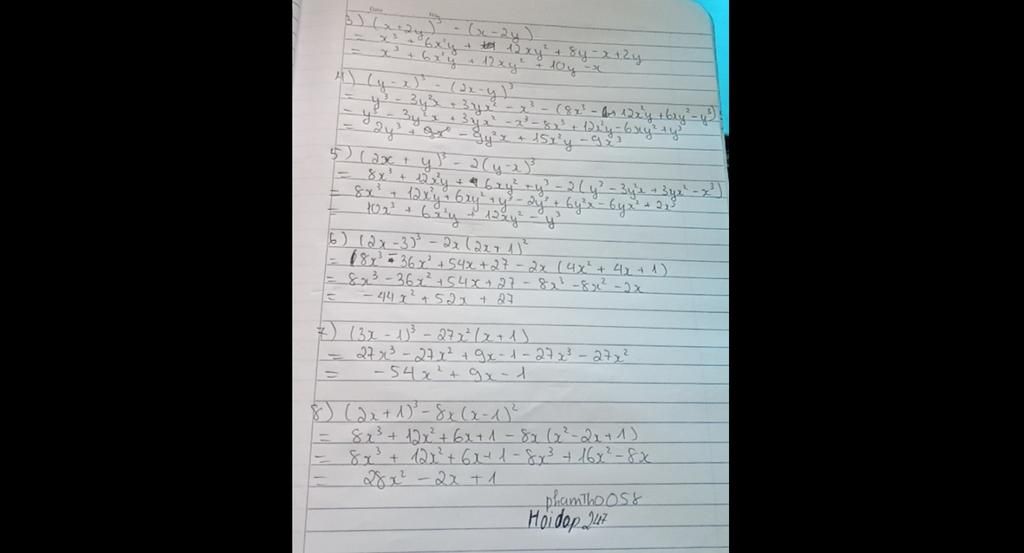 3) (x+2y)³ - (x-2y)
= x³ + 6x²y + 12xy² + 8y - x + 2y
= x³ + 6x²y + 12xy² + 10y - x
4) (y-x)³ - (2x-y)³
= y³ - 3y²x + 3yx² - x³ - (8x³ - 12x²y + 6xy² - y³)
= y³ - 3y²x + 3yx² - x³ - 8x³ + 12x²y - 6xy² + y³
= 2y³ - 9y²x + 15x²y - 9x³
5) (2x + y)³ - 2(y-x)³
= 8x³ + 12x²y + 6xy² + y³ - 2(y³ - 3y²x + 3yx² - x³)
= 8x³ + 12x²y + 6xy² + y³ - 2y³ + 6y²x - 6yx² + 2x³
= 10x³ + 6x²y + 12xy² - y³
6) (2x-3)³ - 2x(2x+1)²
= 8x³ - 36x² + 54x + 27 - 2x (4x² + 4x + 1)
= 8x³ - 36x² + 54x + 27 - 8x³ - 8x² - 2x
= -44x² + 52x + 27
7) (3x-1)³ - 27x²(x+1)
= 27x³ - 27x² + 9x - 1 - 27x³ - 27x²
= -54x² + 9x - 1
8) (2x+1)³ - 8x(x-1)²
= 8x³ + 12x² + 6x + 1 - 8x (x² - 2x + 1)
= 8x³ + 12x² + 6x + 1 - 8x³ + 16x² - 8x
= 28x² - 2x + 1
phamth0058
Hoidap247